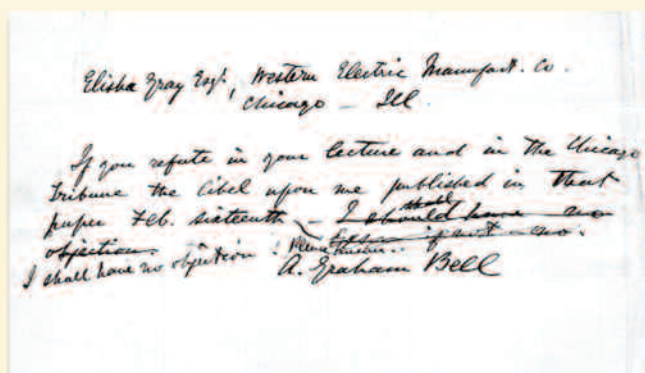 Elisha Gray Esqr., Western Electric Manufact. Co.
Chicago – Ill.
If you refute in your lecture and in the Chicago
Tribune the libel upon me published in that
paper Feb. sixteenth – I should have no
objection. if not – no.
I shall have no objection! Please answer.
A. Graham Bell